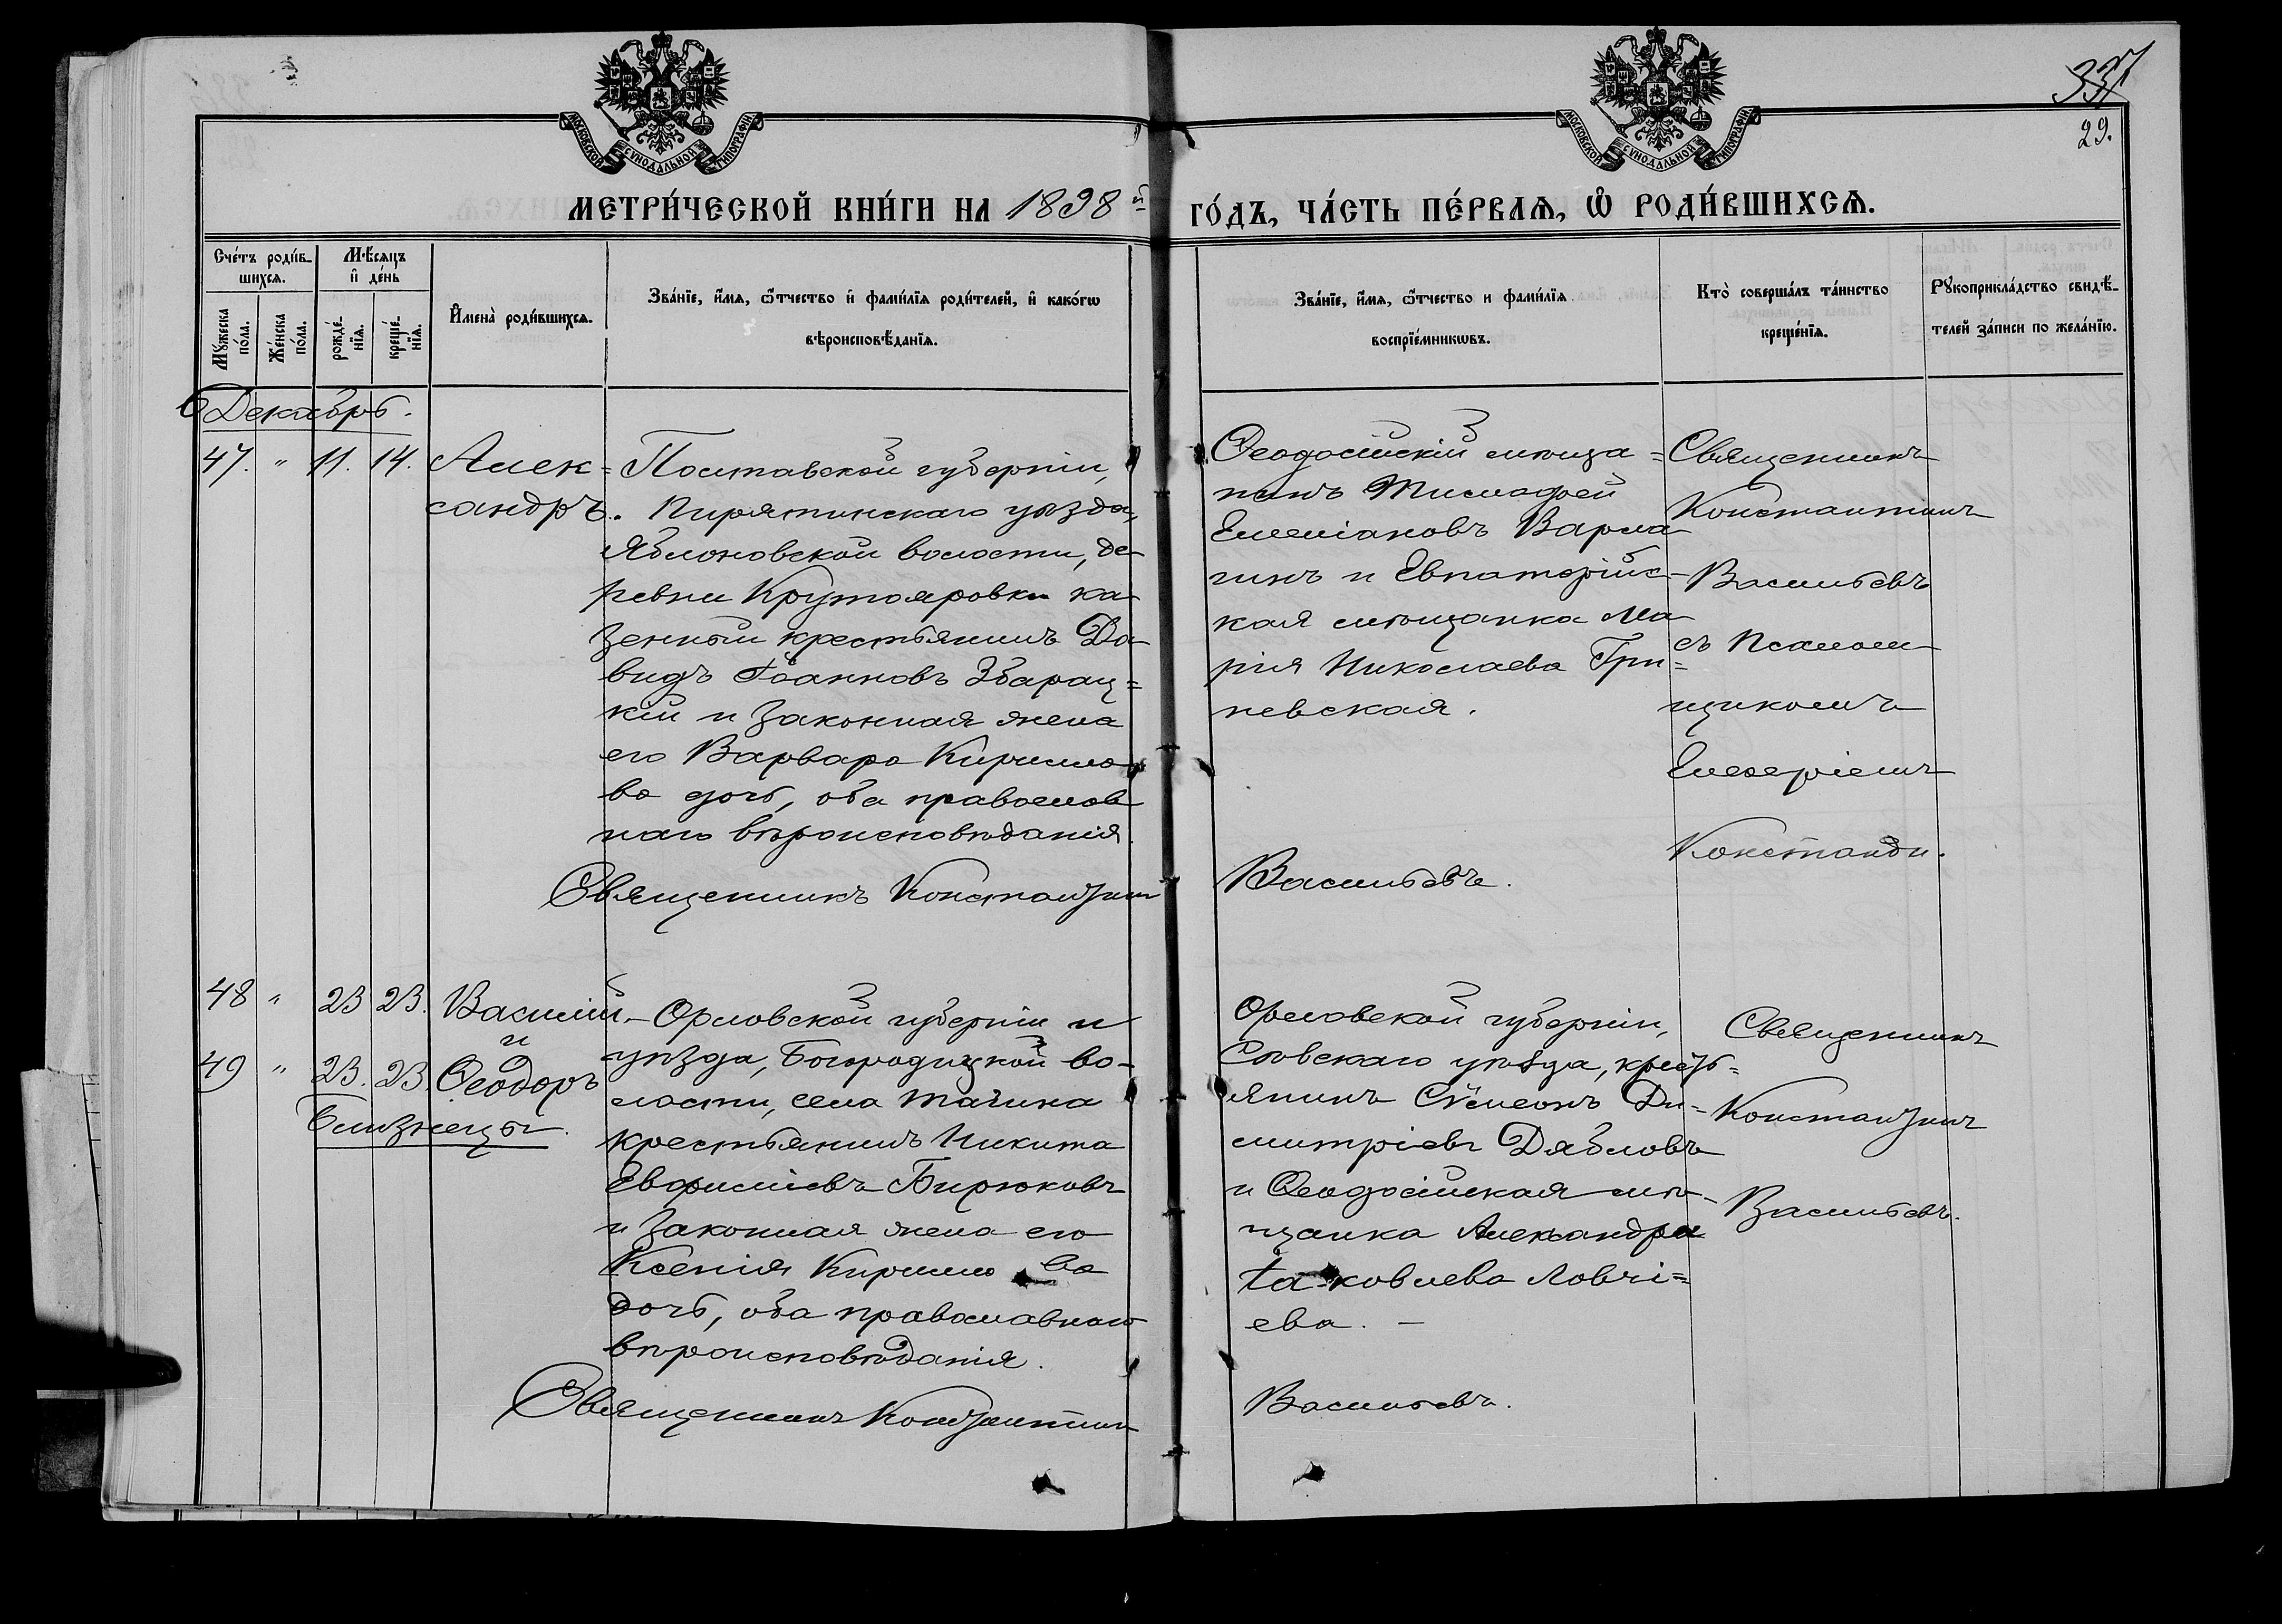 337
29.
МОСКОВСКОЙ СѴНОДАЛЬНОЙ ТИПОГРАФІИ
МОСКОВСКОЙ СѴНОДАЛЬНОЙ ТИПОГРАФІИ
МЕТРИ́ЧЕСКОЙ КНИ́ГИ НА 1898й ГО́ДЪ, ЧА́СТЬ ПЕ́РВАѦ, Ѡ҆ РОДИ́ВШИХСѦ.
Сче́тъ роди́в-
шихсѧ.
Мꙋ́жеска
по́ла.
Же́нска
по́ла.
Мѣ́сѧцъ
и҆ де́нь
рожде́-
нїѧ.
креще́-
нїѧ.
И҆мена̀ роди́вшихсѧ.
Зва́нїе, и҆́мѧ, ѻ҆́тчество и҆ фами́лїѧ роди́телей, и҆ како́гѡ
вѣроисповѣ́данїѧ.
Зва́нїе, и҆́мѧ, ѻ҆́тчество и фами́лїѧ
воспрїе́мникѡвъ.
Кто̀ соверша́лъ та́инство
креще́нїѧ.
Рꙋкоприкла́дство свидѣ́-
телей за́писи по жела́нїю.
Декабрь.
47. " 11. 14.
Алек=
сандръ.
Полтавской губерніи,
Пирятинскаго уѣзда,
Яблоновской волости, де-
ревни Крутояровки ка-
зенный крестьянинъ Да-
видъ Іоанновъ Збарац=
кій и законная жена
его Варвара Кирилло-
ва дочь, оба православ-
наго вѣроисповѣданія.
Священникъ Константин
Ѳеодосійскій мѣща=
нинъ Тимоѳей
Емеліановъ Варла-
гинъ и Евпаторійс-
кая мѣщанка Ма-
рія Николаева Гри=
невская.
Васильевъ.
Священникъ
Константинъ
Васильевъ
съ Псалом-
щикомъ
Елеѳеріемъ
Константи.
48 " 23 23.
49 " 23. 23.
Василій
и
Ѳеодоръ
близнецы.
Орловской губерніи и
уѣзда, Богородицкой во-
лости, села Тайнка
крестьянинъ Никита
Евфиміевъ Бирюковъ
и законная жена его
Ксенія Кирилло ва
дочь, оба православнаго
вѣроисповѣданія.
Священникъ Константин
Орловской губерніи,
Сѣвскаго уѣзда, кресть=
янинъ Сѵмеонъ Ди-
митріевъ Дябловъ
и Ѳеодосійская мѣ-
щанка Александра
Іа-ковлева Ловчі=
ева. —
Васильевъ.
Священникъ
Константинъ
Васильевъ.